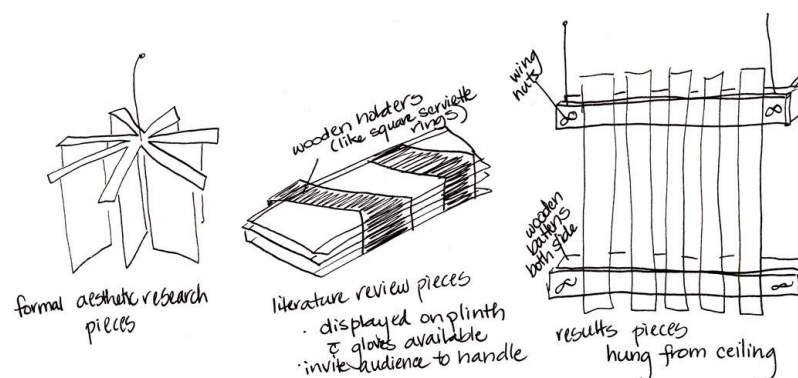 formal aesthetic research
pieces
wooden holders
(like square serviette
rings)
literature review pieces
· displayed on plinth
c̄ gloves available
· invite audience to handle
wing
nuts
wooden
battens
both side
results pieces
hung from ceiling